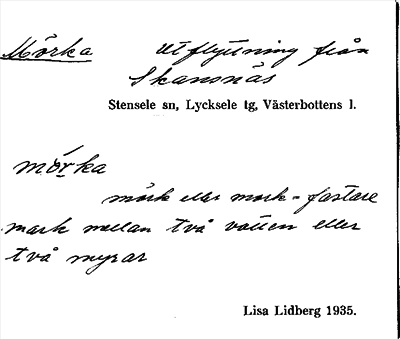 Mörka utflyttning från
Skansnäs
Stensele sn, Lycksele tg, Västerbottens l.
mörka
mörk eller mork = fastare
mark mellan två vatten eller
två myrar
Lisa Lidberg 1935.